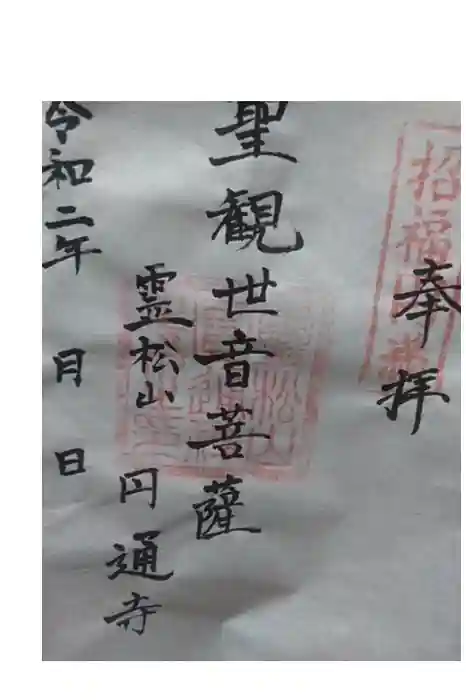 奉拝
聖観世音菩薩
霊松山 円通寺
令和二年 月 日